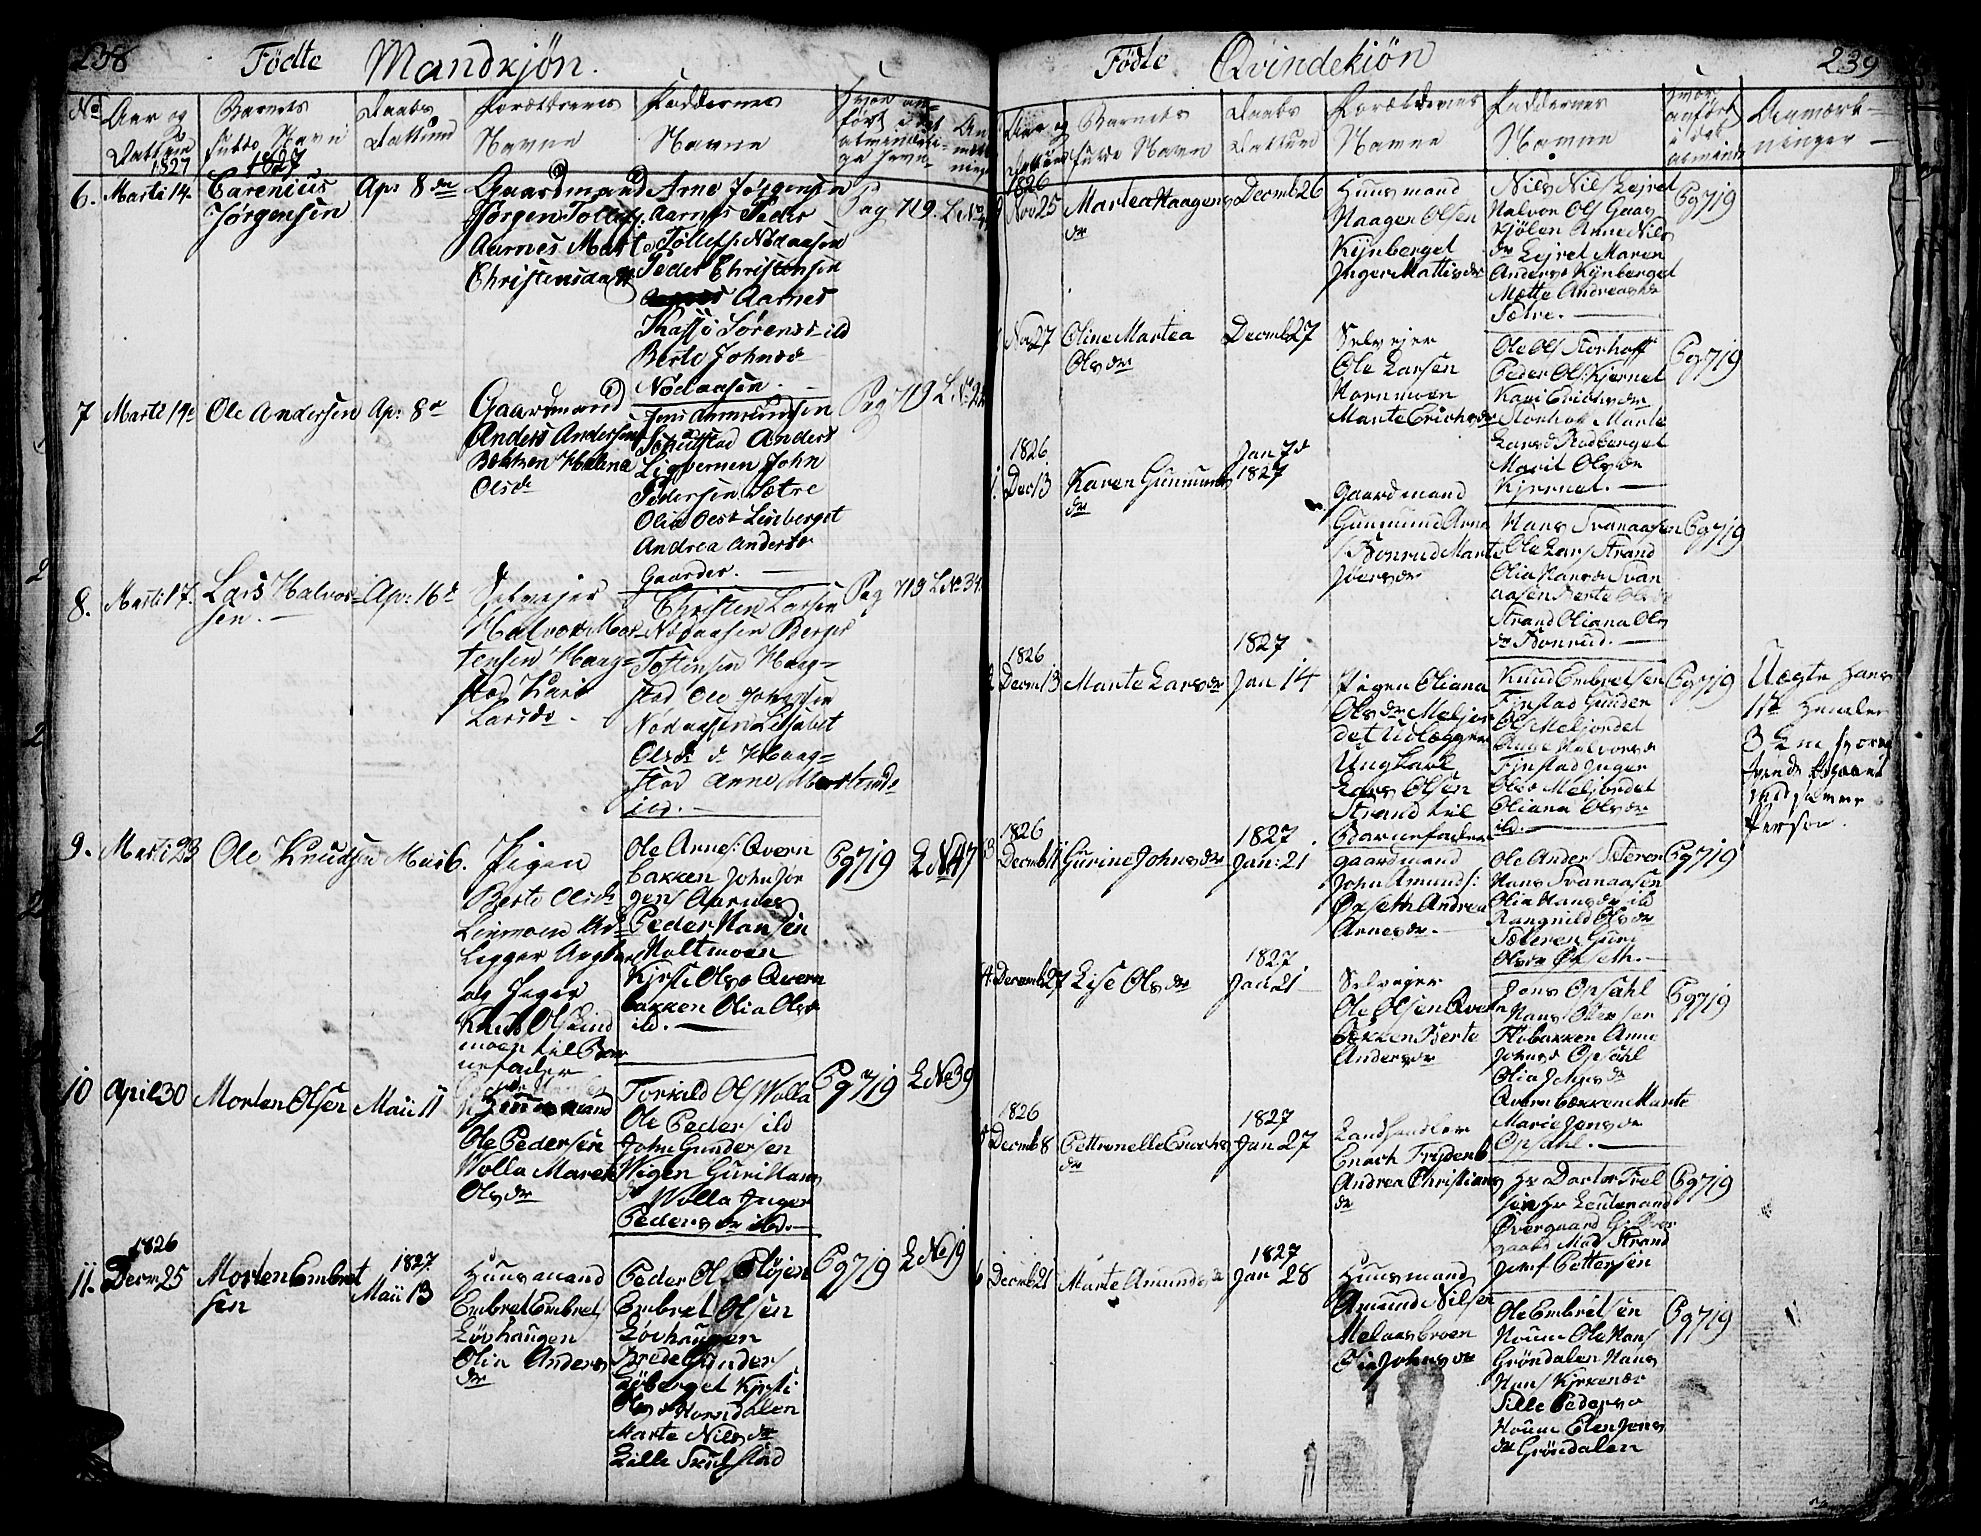 238 Födte Mandkjön.
No
Aar og
Datum
1827
Barnets
fulde Navn
1827
Daabs
Dattum
Forældrenes
Navne
Faddernes
Navne
6. Marti 14. Carenius
Jörgensen
Ap: 8de
Gaardmand
Jörgen Tollefs:
Aarnes Mart
Christensdatt
Arne Jörgensen
Aarnes Peder
Tollefs: Nödaasen
Peder Christensen
Aarnes
Berte Johnsd
Nödaasen.
Pag 719.
7 Marti 14de Ole Andersen Ap: 8de
Gaardmand
Anders Andersen
Bekken Helena
Olsdr
Jens Ammundsen
Anders
John
Pedersen Sætre
Olia Olsd Linberget
Andrea Andersdr
Gaarder.
Pag 719 L No 22
8. Marti 17. Lars Halvor-
sen.
Ap: 16de
Selveier
Halvor Mor-
tensen Haag-
stad Kari
Larsdr.
Christen Larsen
Nödaasen
Haag-
stad Ole Johnsen
Nödaasen Lisabet
Olsdr Haag-
stad Anne
ild.
Pag 719 L No 34.
9. Marti 23 Ole Knudsen Mai 6.
Pigen
Berte Olsdr
Linmoen Ud-
legger Ungkarl
og Jeger
Knud Ols Lind
moen til Bar
nefader
Ole Arnes: Qvern
bakken John Jör
gens Aarnes
Peder Hansen
Moltmoen
Kjersti Olsd Qvern
bakken Olia Olsdr
ild.
Pg 719 L No 47
10 April 30 Morten Olsen Maii 11
Huusmand
Ole Pedersen
Wolla Maren
Olsdr
Torkild Ols Wolla
Ole Peders ild
John Gundersen
Wigen Guri Hans
dr Wolla Inger
Pedersdr ild.
Pg 719 L No 39
1826
11. Decm 25 Morten Embret
sen
1827
Maii 13
Huusmand
Embret Embrets
Lövhaugen
Olia Anders
dr
Peder Ols Flöjen
Embret Olsen
Lövhaugen
Gunders
Kjersti
Olsdr Horndalen
Marte Nilsdr
Lille Skulstad
Pg 719 L No 19
Födte Qvindekiön 239
Aar og
Barnets
fulde Navn
Daabs
Dattum
Forældrenes
Navne
Faddernes
Navne
Hvor
anfört
i det
alminde
Anmærk-
ninger
1826
Nov 25 Martea Haagens
dr
Decmb 26
Huusmand
Haagen Olsen
Kynberget
Inger Mattisdr
Nils Nils Lejret
Halvor Ols Gaas
kjölen Anne Nils
dr Lejret Maren
Andersd Kynberget
Mette Andreasdr
Sætre.
Pg 719
Nov 27 Oline Martea
Olsdr
Decmb 27
Selvejer
Ole Larsen
Hornmoen
Marte Erichsdr
Ole Ols Storhoff
Peder Ols Kjernet
Kari Erichsdr
Storhof Marte
Larsd Rodberget
Marit Olsdr
Kjernet.
Pg 719
1826
Dec 13 Karen Gunmunds
dr
Jan 7de
1827
Gaardmand
Gunmund Arne
s Bonrud Marte
Joensdr
Hans Svanaasen
Ole Lars Strand
Olia Hansd Svan
aasen Berte Olsdr
Strand Oliana Ols
dr Bonrud.
Pg 719
1826
Decm 13 Marte Larsdr
1827
Jan 14
Pigen Oliana
Olsdr Meljor
det Udlegger
Ungkarl
Lars Olsen
Strand til
Barnefader
Knud Embretsen
Finstad Gunder
Ols Meljordet
Aage Halvorsdr
Finstad Inger
Olsd Meljordet
Oliana Olsdr
ild.
Pg 719
Uegte hans
1ste hendes
Person.
1826
Decmb 17 Gurine Johnsdr
1827
Jan: 21
Gaardmand
John Amunds:
Öxseth Andrea
Arnesdr.
Ole Anders Sæteren
Hans Svanaasen
Olia Hansdr ild
Rangnild Olsdr
Sæteren Guri
Olsdr Öxseth.
Pg 719
4. Decemb 27 Lise Olsdr
1827
Jan 21
Selvejer
Ole Olsen Qvern
bakken Berte
Andersdr
Jens Opsahl
Hans Ollersen
Flobakken Anne
Johnsd Opsahl
Olia Johnsdr
Qvernbakken Marte
Marie Jensdr
Opsahl.
Pg 719
1826
Decmb 8 Pettronelle Enochs
dr
1827
Jan 27
Landhandler
Enoch Trydenb
Andrea Christians
dr
Hr Doctor Trel
sen Hr Leutenand
Övergaard
Mad Strand
Jomf Pettersen
Pg 719
6 Decmb 21 Marte Amundsdr
1827
Jan 28
Huusmand
Amund Nilsen
Melaasbroen
Olia Johnsdr
Ole Embretsen
Houm Ole Hans
Gröndalen Hans
Hans Kjrkenær
Sille Pedersdr
Houm Elen Jens
dr Gröndalen
Pg 719